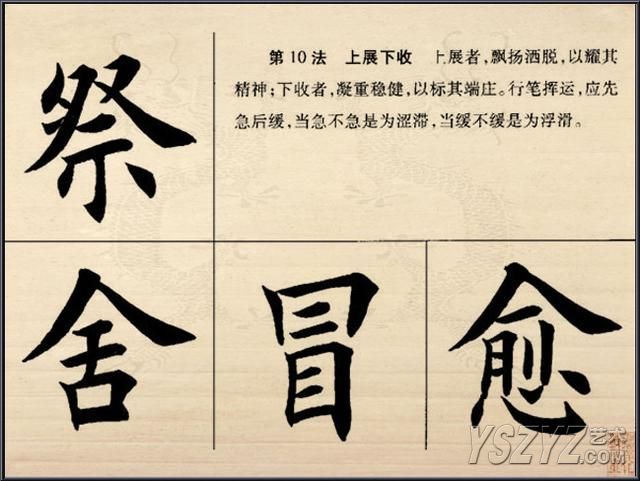 第10法 上展下收 上展者，飘扬洒脱，以耀其
精神；下收者，凝重稳健，以标其端庄。行笔挥运，应先
急后缓，当急不急是为涩滞，当缓不缓是为浮滑。
祭
舍 冒 愈
YSZYZ艺术
.COM